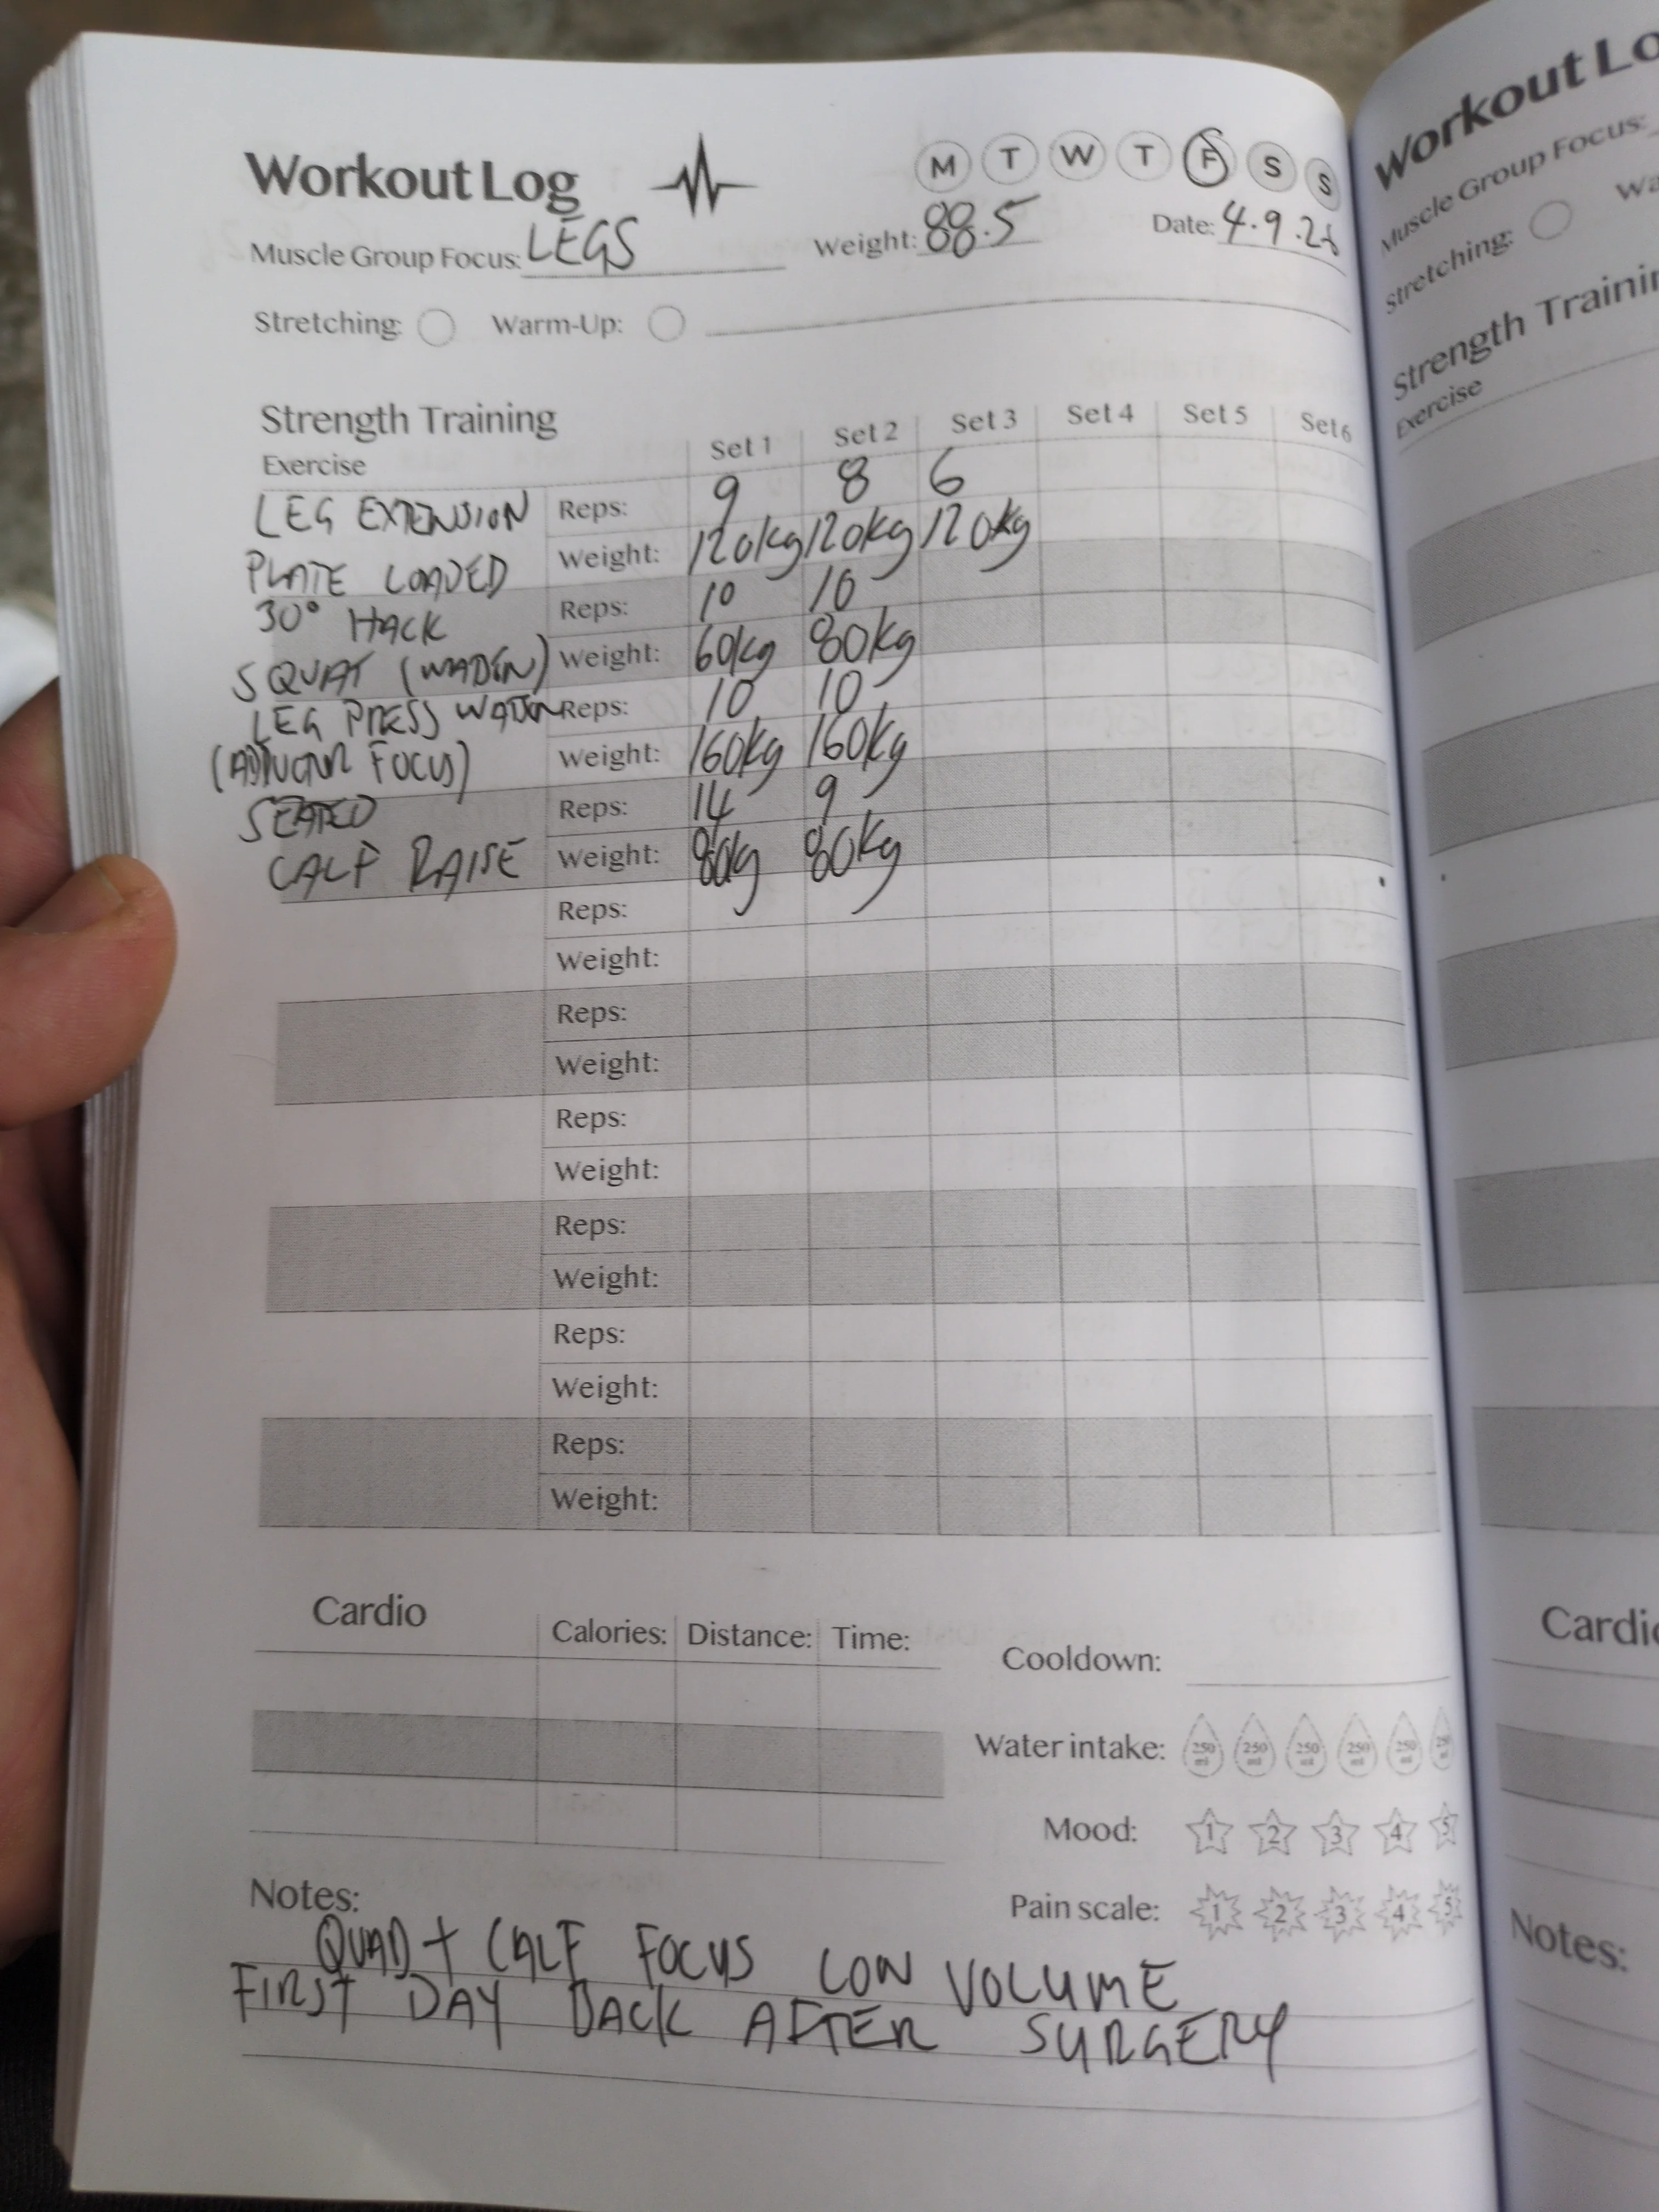 Workout Log M T W T F S S
Muscle Group Focus: LEGS Weight: 88.5 Date: 4.9.26
Stretching: Warm-Up:
Strength Training Set 1 Set 2 Set 3 Set 4 Set 5 Set 6
Exercise
LEG EXTENSION Reps: 9 8 6
PLATE LOADED Weight: 120kg 120kg 120kg
30° HACK Reps: 10 10
SQUAT (WADEN) Weight: 60kg 80kg
LEG PRESS Reps: 10 10
(ADDUCTOR FOCUS) Weight: 160kg 160kg
SEATED Reps: 14 9
CALF RAISE Weight: 80kg 80kg
Reps:
Weight:
Reps:
Weight:
Reps:
Weight:
Reps:
Weight:
Reps:
Weight:
Reps:
Weight:
Cardio Calories: Distance: Time:
Cooldown:
Water intake: 250 ml 250 ml 250 ml 250 ml 250 ml 250 ml
Mood: 1 2 3 4 5
Pain scale: 1 2 3 4 5
Notes:
QUAD + CALF FOCUS LOW VOLUME
FIRST DAY BACK AFTER SURGERY
Workout Lo
Muscle Group Focus:
Stretching: Wa
Strength Trainin
Exercise
Cardio
Notes: